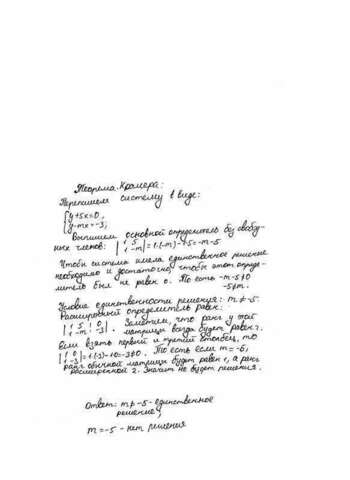 Теорема Крамера:
Перепишем систему в виде:
{y+5x=0,
{y-mx=-3;
Выпишем основной определитель без свобод-
ных членов: |1 5; 1 -m|=1·(-m)-1·5=-m-5
Чтобы система имела единственное решение
необходимо и достаточно, чтобы этот опреде-
литель был не равен 0. То есть -m-5≠0
-5≠m.
Условие единственности решения: m≠-5.
Расширенный определитель равен:
|1 5 | 0; 1 -m | -3|. Заметим, что ранг у этой
матрицы всегда будет равен 2.
Если взять первый и третий столбец, то
|1 0; 1 -3|=1·(-3)-1·0=-3≠0. То есть если m=-5,
ранг обычной матрицы будет равен 1, а ранг
расширенной 2. Значит не будет решения.
Ответ: m≠-5 - единственное
решение;
m=-5 - нет решения